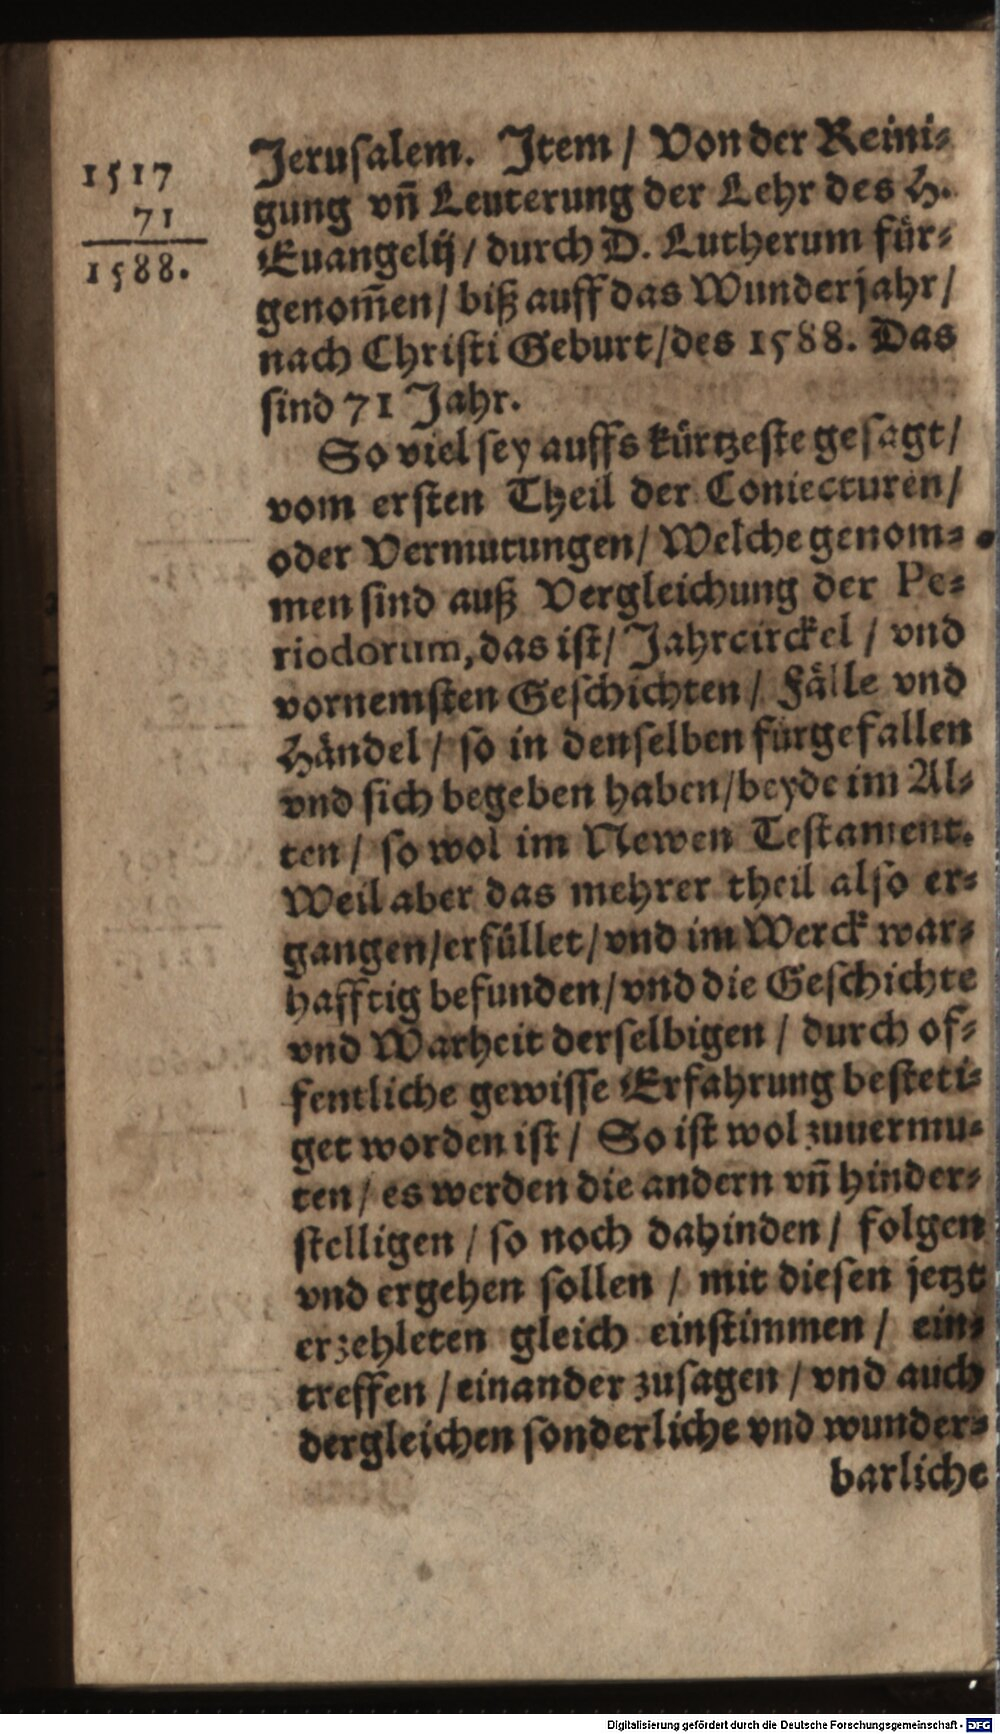 1517
71
1588.
Jerusalem. Item / Von der Reini-
gung vñ Leuterung der Lehr des H.
Euangelij / durch D. Lutherum für-
genom̃en / biß auff das Wunderjahr /
nach Christi Geburt / des 1588. Das
sind 71 Jahr.
So viel sey auffs kürtzeste gesagt /
vom ersten Theil der Coniecturen /
oder Vermutungen / Welche genom-
men sind auß Vergleichung der Pe-
riodorum, das ist / Jahrcirckel / vnd
vornemsten Geschichten / Fälle vnd
Händel / so in denselben fürgefallen
vnd sich begeben haben / beyde im Al-
ten / so wol im Newen Testament.
Weil aber das mehrer theil also er-
gangen / erfüllet / vnd im Werck war-
hafftig befunden / vnd die Geschichte
vnd Warheit derselbigen / durch of-
fentliche gewisse Erfahrung besteti-
get worden ist / So ist wol zuuermu-
ten / es werden die andern vñ hinder-
stelligen / so noch dahinden / folgen
vnd ergehen sollen / mit diesen jetzt
erzehleten gleich einstimmen / ein-
treffen / einander zusagen / vnd auch
dergleichen sonderliche vnd wunder-
barliche
Digitalisierung gefördert durch die Deutsche Forschungsgemeinschaft - DFG